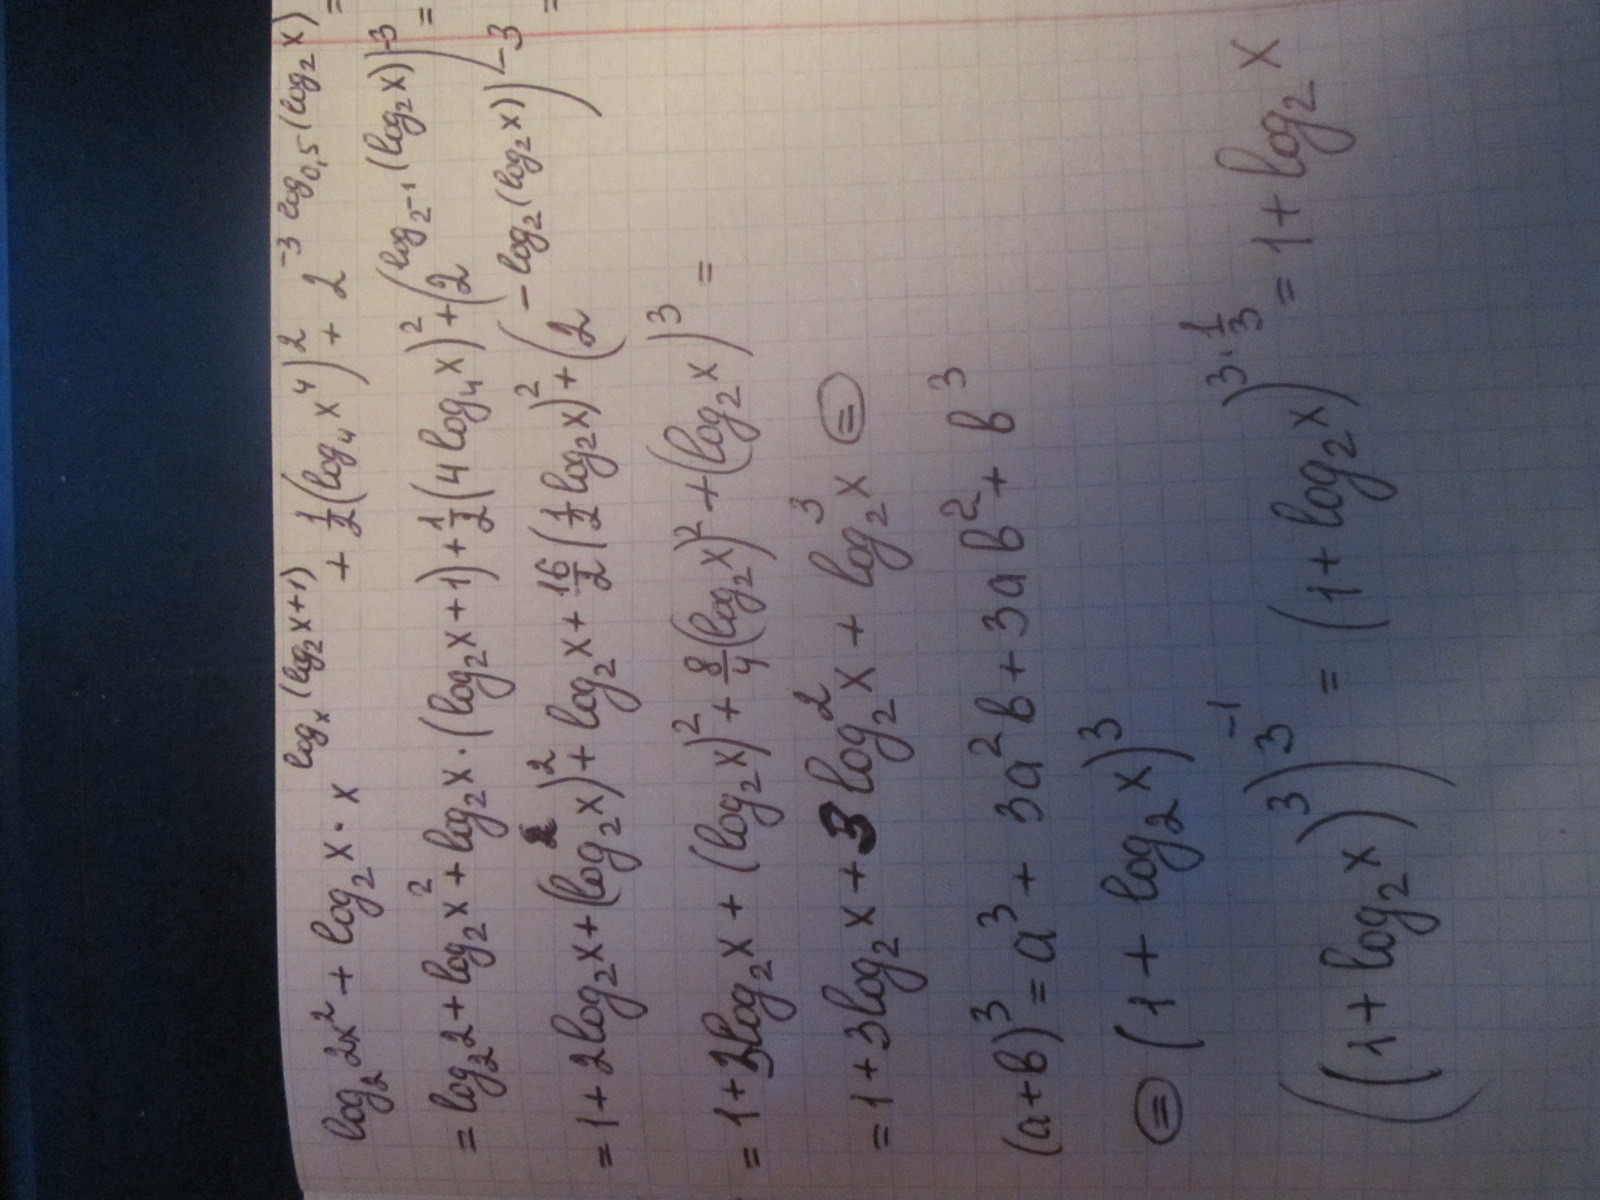 log₂2x² + log₂x · x^(logₓ(log₂x+1)) + 1/2(log₄x⁴)² + 2^(-3 log₀,₅(log₂x)) =
= log₂2 + log₂x² + log₂x · (log₂x+1) + 1/2(4log₄x)² + (2^(log₂₋₁(log₂x)))^(-3) =
= 1 + 2log₂x + (log₂x)² + log₂x + 16/2(1/2 log₂x)² + (2^(-log₂(log₂x)))^(-3) =
= 1 + 3log₂x + (log₂x)² + 8/4(log₂x)² + (log₂x)³ =
= 1 + 3log₂x + 3log₂²x + log₂³x =
(a+b)³ = a³ + 3a²b + 3ab² + b³
= (1 + log₂x)³
((1 + log₂x)³)^(3⁻¹) = (1 + log₂x)^(3·1/3) = 1 + log₂x